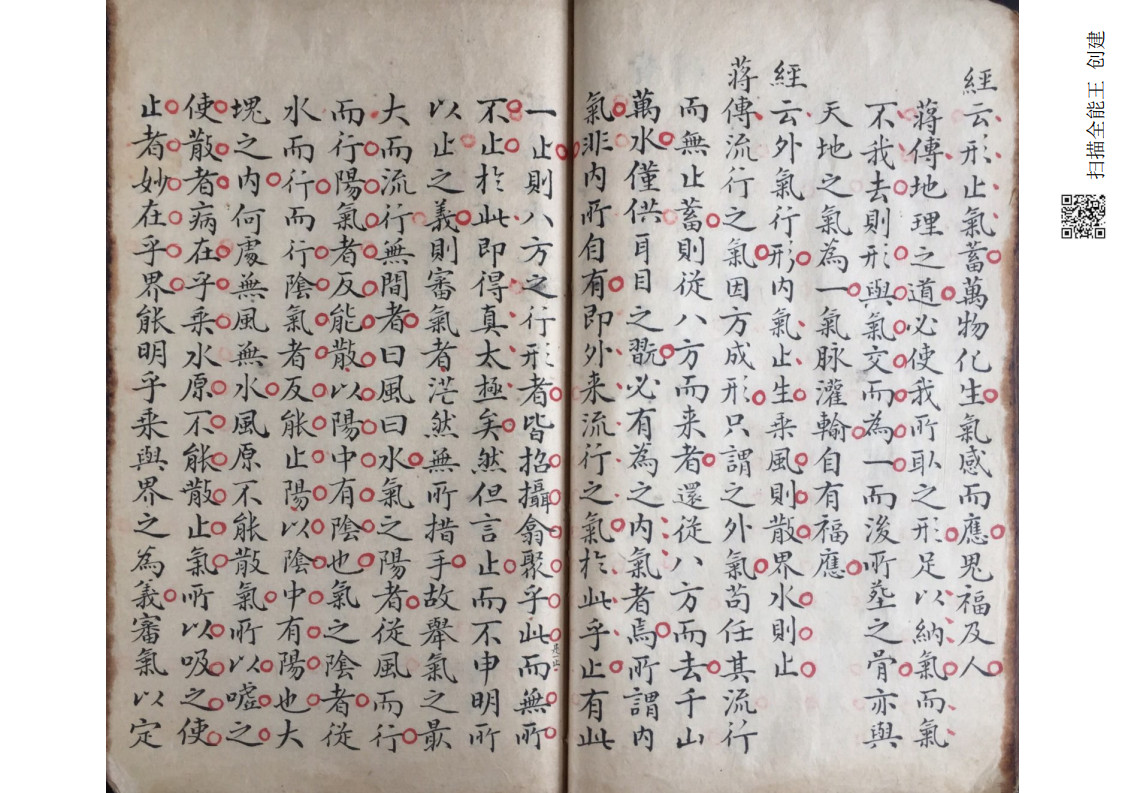 經云形止氣蓄萬物化生氣感而應鬼福及人
蔣傳地理之道必使我所取之形足以納氣而氣
不我去則形與氣交而為一而後所塟之骨亦與
天地之氣為一氣脉灌輸自有福應
經云外氣行形內氣止生乘風則散界水則止
蔣傳流行之氣因方成形只謂之外氣苟任其流行
而無止蓄則從八方而來者還從八方而去千山
萬水僅供耳目之翫必有為之內氣者焉所謂內
氣非內所自有即外来流行之氣於此乎止有此
一止則八方之行形者皆招攝翕聚乎此而無所
不止於此即得真太極矣然但言止而不申明所
以止之義則審氣者茫然無所措手故舉氣之最
大而流行無間者曰風曰水氣之陽者從風而行
而行陽氣者反能散以陽中有陰也氣之陰者從
水而行而行陰氣者反能止陽以陰中有陽也大
塊之內何處無風無水風原不能散氣所以噓之
使散者病在乎乘水原不能散止氣所以吸之使
止者妙在乎界能明乎乘與界之為義審氣以定
扫描全能王 创建